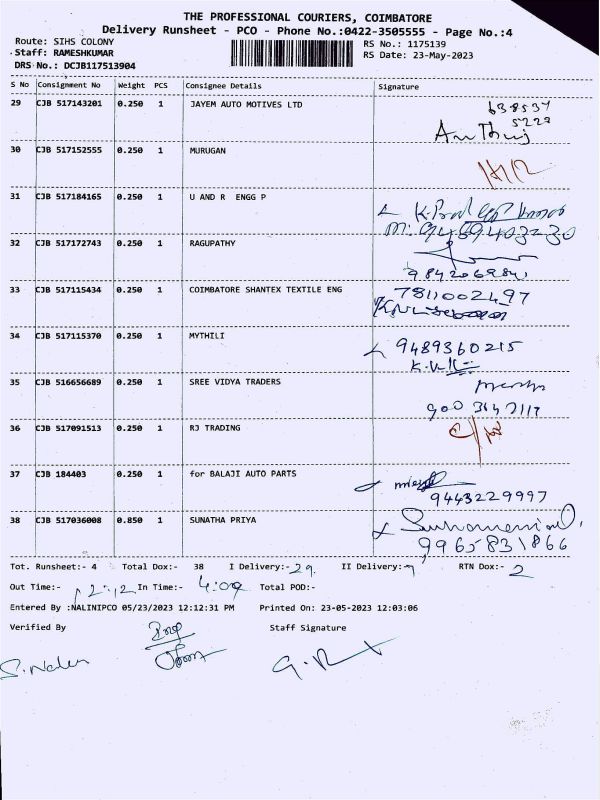 THE PROFESSIONAL COURIERS, COIMBATORE
Delivery Runsheet - PCO - Phone No.:0422-3505555 - Page No.:4
Route: SIHS COLONY RS No.: 1175139
Staff: RAMESHKUMAR RS Date: 23-May-2023
DRS No.: DCJB117513904
S No Consignment No Weight PCS Consignee Details Signature
29 CJB 517143201 0.250 1 JAYEM AUTO MOTIVES LTD
30 CJB 517152555 0.250 1 MURUGAN
31 CJB 517184165 0.250 1 U AND R ENGG P
32 CJB 517172743 0.250 1 RAGUPATHY
9842069841
33 CJB 517115434 0.250 1 COIMBATORE SHANTEX TEXTILE ENG 7811002497
34 CJB 517115370 0.250 1 MYTHILI
9489360215
35 CJB 516656689 0.250 1 SREE VIDYA TRADERS
36 CJB 517091513 0.250 1 RJ TRADING
37 CJB 184403 0.250 1 for BALAJI AUTO PARTS
9443229997
38 CJB 517036008 0.850 1 SUNATHA PRIYA
9965831866
Tot. Runsheet:- 4 Total Dox:- 38 I Delivery:- 29 II Delivery:- 7 RTN Dox:- 2
Out Time:- 12:12 In Time:- 4:09 Total POD:-
Entered By :NALINIPCO 05/23/2023 12:12:31 PM Printed On: 23-05-2023 12:03:06
Verified By Staff Signature